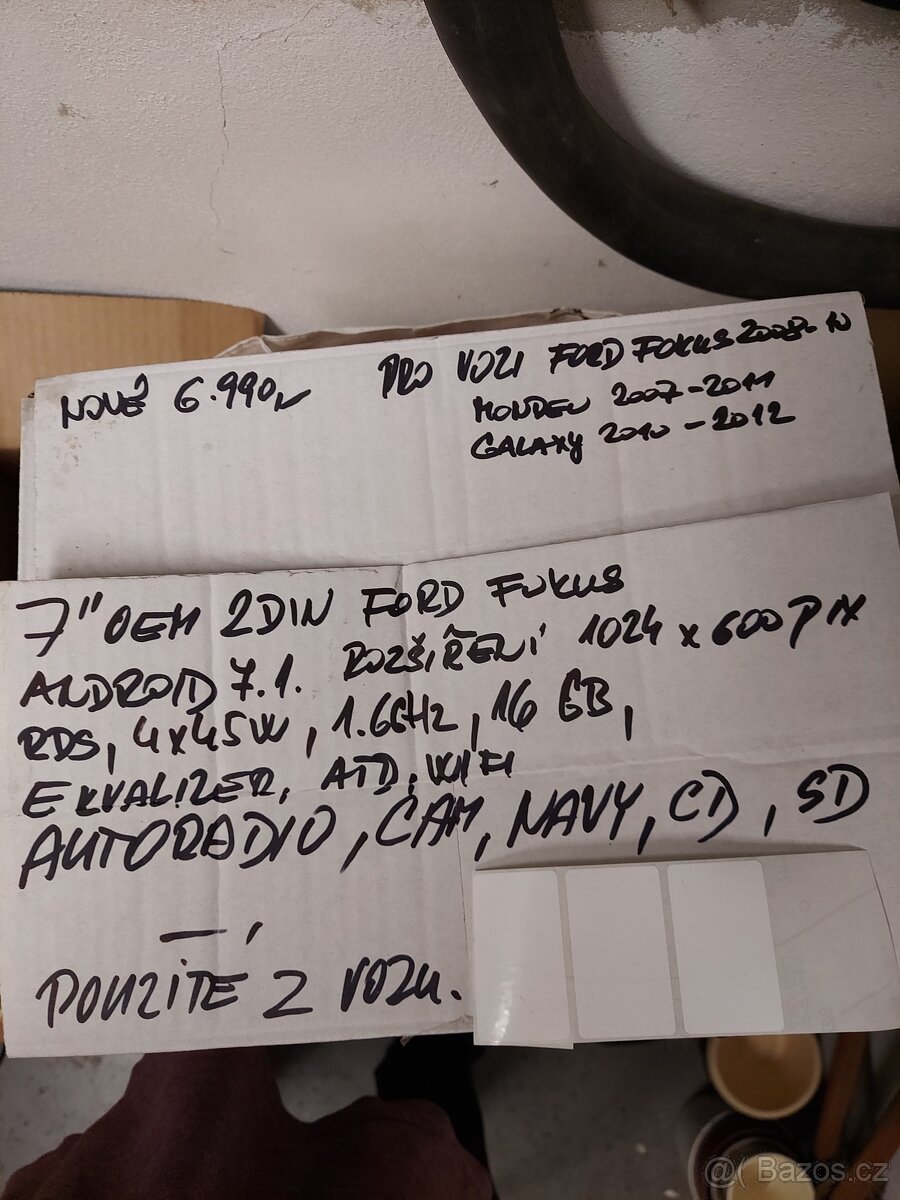 NOVĚ 6.990,-
PRO VOZI FORD FOKUS
MONDEU 2007-2011
GALAXY 2010 - 2012
7" OEM 2DIN FORD FUKUS
ANDROID 7.1. ROZŠÍŘENÍ 1024 x 600 PIX
RDS, 4x45W, 1.6GHz, 16 GB,
EKVALIZER, ATD, WIFI
AUTORADIO, CAM, NAVY, CD, SD
POUZITÉ Z VOZU.
@( Bazos.cz